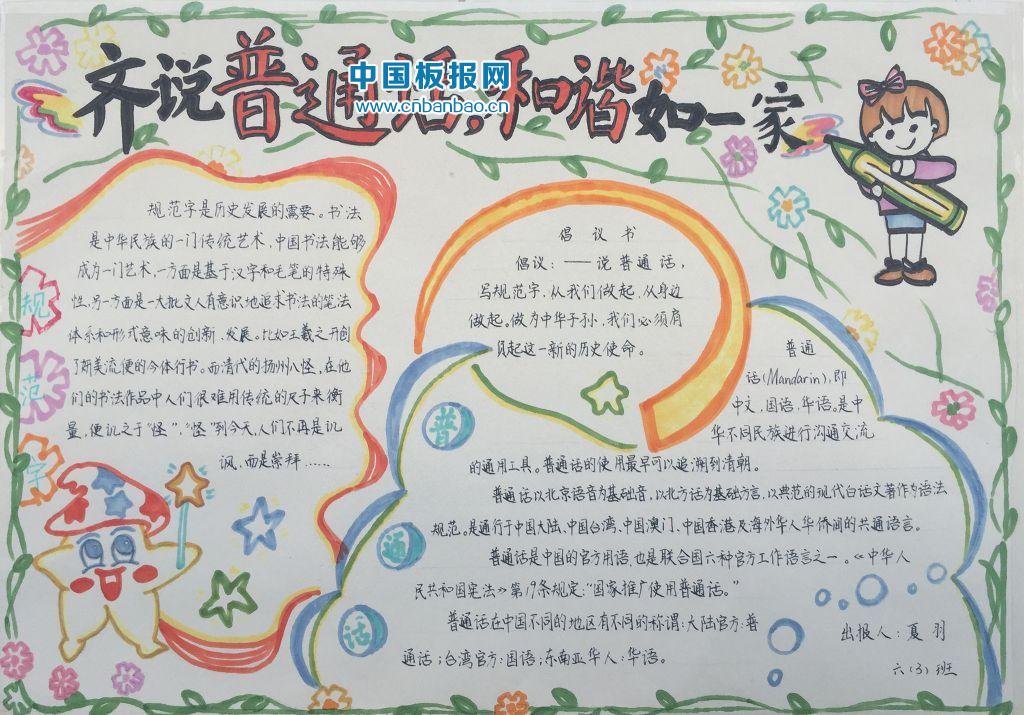 齐说普通话,和谐如一家
中国板报网
www.cnbanbao.cn
规范字
规范字是历史发展的需要。书法
是中华民族的一门传统艺术，中国书法能够
成为一门艺术，一方面是基于汉字和毛笔的特殊
性，另一方面是一大批文人有意识地追求书法的笔法
体系和形式意味的创新、发展。比如王羲之开创
了妍美流便的今体行书。而清代的扬州八怪，在他
们的书法作品中人们很难用传统的尺子来衡
量，便讥之于“怪”，“怪”到今天，人们不再是讥
讽，而是崇拜……
倡议书
倡议：——说普通话，
写规范字，从我们做起，从身边
做起。做为中华子孙，我们必须肩
负起这一新的历史使命。
普
通
话
普通
话(Mandarin)，即
中文，国语，华语。是中
华不同民族进行沟通交流
的通用工具。普通话的使用最早可以追溯到清朝。
普通话以北京语音为基础音，以北方话为基础方言，以典范的现代白话文著作为语法
规范。是通行于中国大陆、中国台湾、中国澳门、中国香港及海外华人华侨间的共通语言。
普通话是中国的官方用语，也是联合国六种官方工作语言之一。《中华人
民共和国宪法》第19条规定：“国家推广使用普通话。”
普通话在中国不同的地区有不同的称谓：大陆官方：普
通话；台湾官方：国语；东南亚华人：华语。
出报人：夏羽
六(3)班